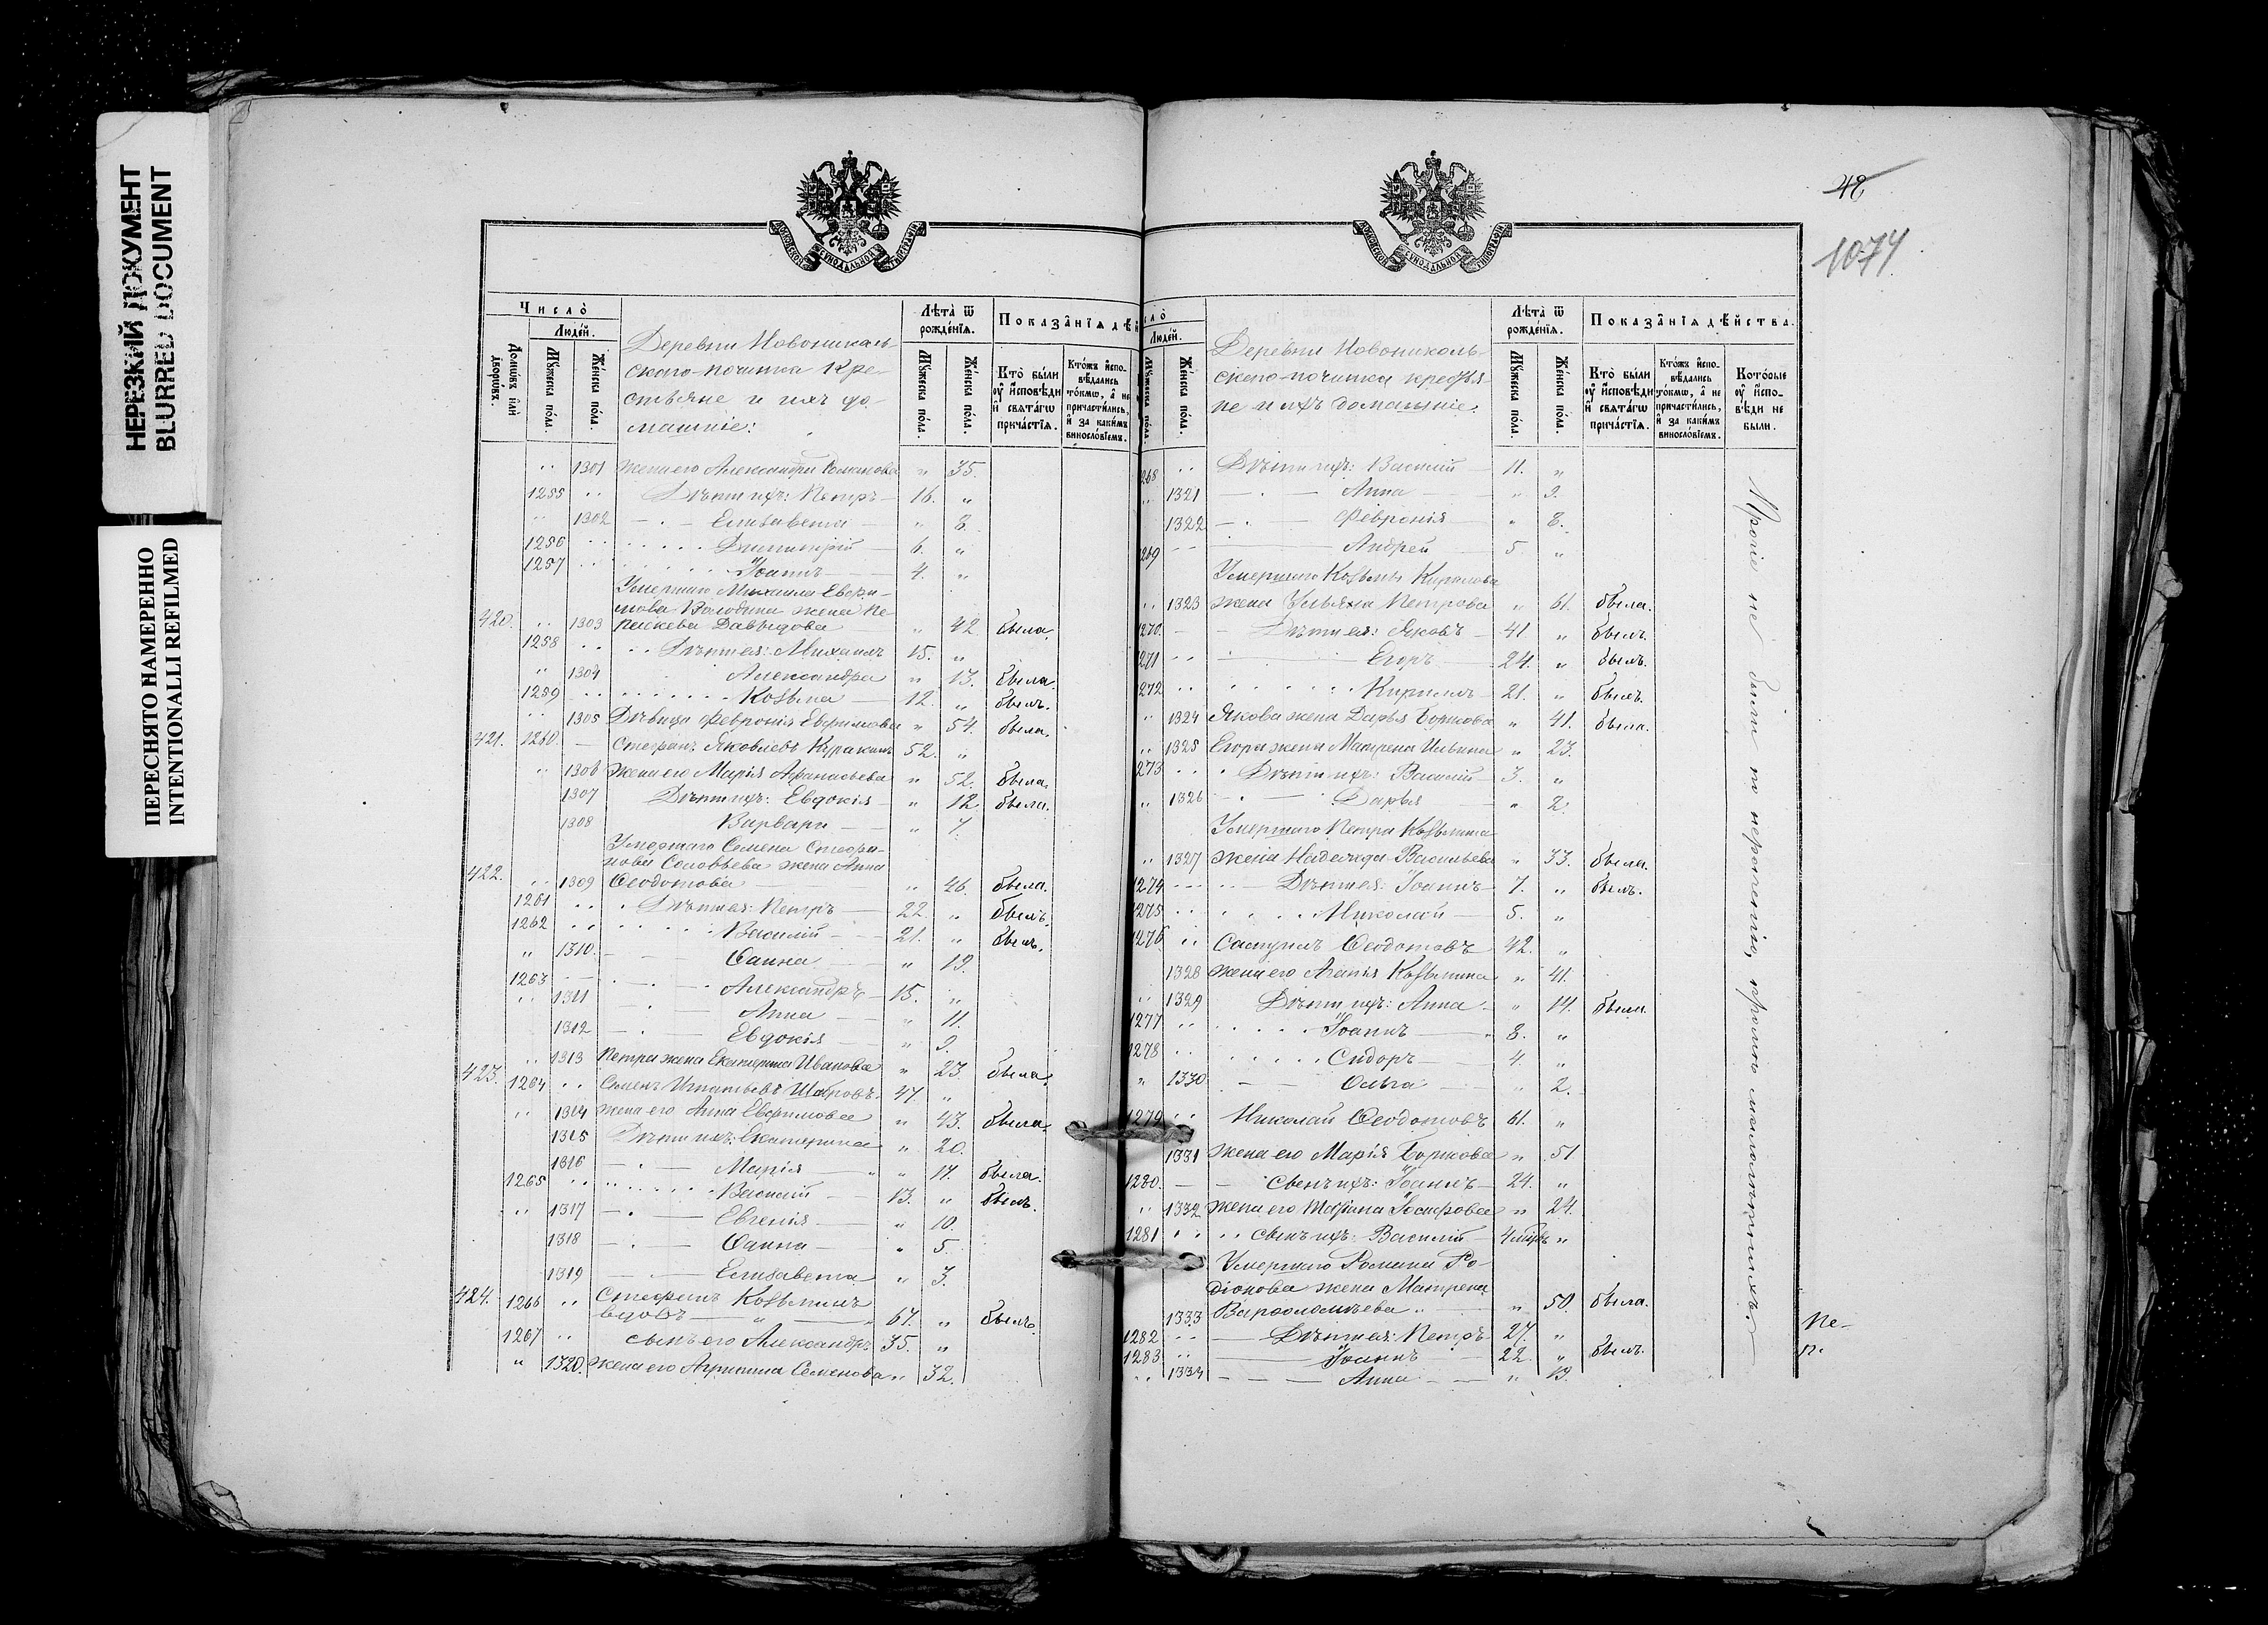 НЕРЕЗКИЙ ДОКУМЕНТ
BLURRED DOCUMENT
ПЕРЕСНЯТО НАМЕРЕННО
INTENTIONALLI REFILMED
Число̀
Людей.
Домѡвъ или дворѡвъ.
Мꙋжеска пола.
Женска пола.
Деревни Новониколь-
скаго-починка Кре-
стьяне и ихъ до-
машніе:
Лѣта ѿ рожденїѧ.
Мꙋжеска пола.
Женска пола.
Показанїѧ дѣй
Кто̀ были оу҆ исповѣди и свѧтагѡ причастїѧ.
Ктожъ исповѣдались токмѡ, а не причастились, и за какимъ винословїемъ.
.. 1301 жена его Александра Романова " 35.
1255 .. Дѣти ихъ: Петръ 16. "
" 1302 Елизавета " 8.
1256 .. Димитрій 6. "
1257 .. Іоаннъ 4. "
Умершаго Михаила Евфи-
мова Володина жена Па-
420. .. 1303 раскева Давыдова " 42. была.
1258 .. Дѣти ея: Михаилъ 15. "
" 1304 Александра " 13. была.
1259 .. Козьма 12. " былъ.
.. 1305 Дѣвица Февронія Евфимова " 54. была.
421. 1260. — Стефанъ Яковлевъ 52. "
" 1306 жена его Марія Афанасьева " 52. была.
1307 Дѣти ихъ: Евдокія " 12. была.
1308 Варвара " 7.
Умершаго Семена Стефа-
нова Соловьева жена Анна
422. .. 1309 Ѳеодотова " 46. была.
1261 .. Дѣти ея: Петръ 22. " былъ.
1262 .. Василій 21. " былъ.
" 1310. Ѳаина " 19.
1263 Александръ 15. "
.. 1311 Анна " 11.
1312 Евдокія " 9.
.. 1313 Петра жена Екатерина Иванова " 23. была.
423. 1264 .. Семенъ Игнатьевъ 47. "
.. 1314 жена его Анна Евфимова " 43. была.
1315 Дѣти ихъ: Екатерина " 20.
1316 Марія " 17. была.
1265 .. Василій 13. " былъ.
.. 1317 Евгенія " 10.
1318 Ѳаина " 5.
1319 Елизавета " 3.
424. 1266 .. Стефанъ Козьминъ
вдовъ 67. " былъ.
1267 .. сынъ его Александръ 35. "
" 1320. жена его Агрипина Семенова " 32.
48
1074
сло̀
Людей.
Мꙋжеска пола.
Женска пола.
Деревни Новониколь-
скаго-починка крестья-
не и ихъ домашніе.
Лѣта ѿ рожденїѧ.
Мꙋжеска пола.
Женска пола.
Показанїѧ дѣйства.
Кто̀ были оу҆ исповѣди и свѧтагѡ причастїѧ.
Ктожъ исповѣдались токмѡ, а не причастились, и за какимъ винословїемъ.
Которые оу҆ исповѣди не были.
268 .. Дѣти ихъ: Василій 11. "
.. 1321 Анна " 9.
1322 Февронія " 8.
269 .. Андрей 5. "
Умершаго Козьмы Кирилова
.. 1323 жена Ульяна Петрова " 61. была.
1270. Дѣти ея: Яковъ 41 " былъ.
1271 .. Егоръ 24. " былъ.
1272 .. Кирилъ 21. " былъ.
" 1324 Якова жена Дарья " 41. была.
.. 1325 Егора жена Матрена Ильина " 23.
1273 .. Дѣти ихъ: Василій 3. "
" 1326 Дарья " 2.
Умершаго Петра Козьмина
.. 1327 жена Надежда Васильева " 33. была.
1274 Дѣти ея: Іоаннъ 7. " былъ.
1275 .. Николай 5. "
1276 .. Самуилъ Ѳеодотовъ 42. "
1328 жена его Агапія Козьмина " 41.
.. 1329 Дѣти ихъ: Анна " 14. была.
1277 .. Іоаннъ 8. "
1278 .. Сидоръ 4. "
" 1330 Ольга " 2.
1279 .. Николай Ѳеодотовъ 61. "
1331 жена его Марія " 51
1280. сынъ ихъ: Іоаннъ 24. "
.. 1332 жена его Іосифова " 24.
1281 .. сынъ ихъ: Василій "
Умершаго Романа Ро-
діонова жена Матрена
1333 Варѳоломѣева " 50. была.
1282 .. Дѣти ея: Петръ 27. "
1283 .. Іоаннъ 22. " былъ.
.. 1334 Анна " 19.
Прочіе не были по нерадению, кромѣ малолѣтнихъ.